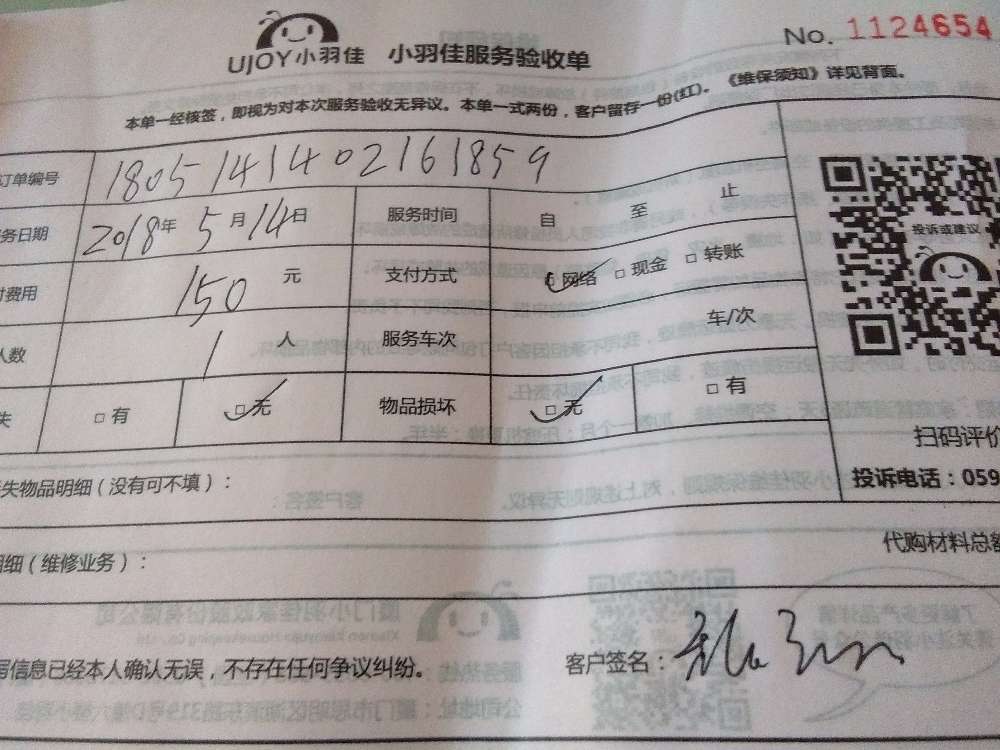 UJOY小羽佳 小羽佳服务验收单 No. 1124654
本单一经核签，即视为对本次服务验收无异议。本单一式两份，客户留存一份(红)。《维保须知》详见背面。
订单编号 1805141402161859
务日期 2018年 5月14日 服务时间 自 至 止
付费用 150 元 支付方式 ☑网络 □现金 □转账
人数 1 人 服务车次 车/次
失 □有 ☑无 物品损坏 ☑无 □有
投诉或建议
扫码评价
失物品明细（没有可不填）： 投诉电话：059
代购材料总额
明细（维修业务）：
写信息已经本人确认无误，不存在任何争议纠纷。 客户签名：